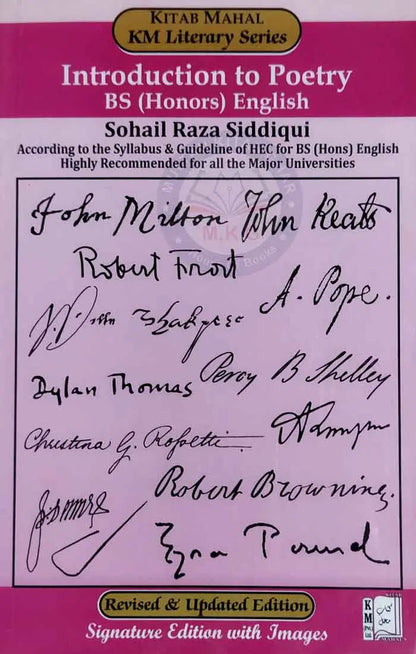 KITAB MAHAL
KM Literary Series
Introduction to Poetry
BS (Honors) English
Sohail Raza Siddiqui
According to the Syllabus & Guideline of HEC for BS (Hons) English
Highly Recommended for all the Major Universities
John Milton John Keats
Robert Frost
A. Pope.
Dylan Thomas Percy B Shelley
Christina G. Rossetti
Robert Browning.
Ezra Pound
Revised & Updated Edition
Signature Edition with Images
KM